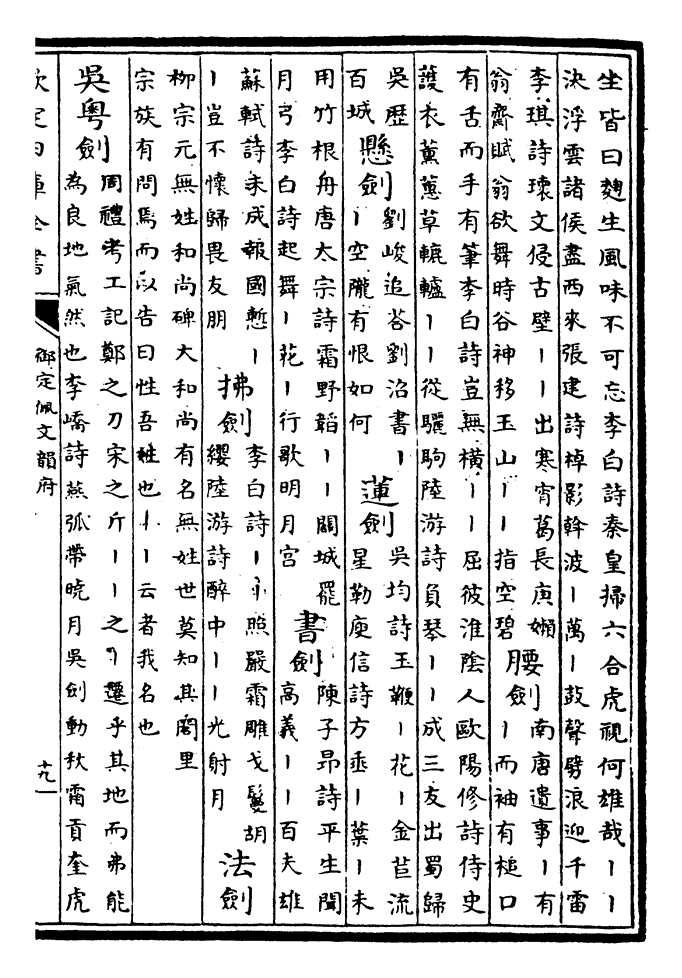 坐皆曰麹生風味不可忘李白詩秦皇掃六合虎視何雄哉丨丨
決浮雲諸侯盡西來張建詩棹影斡波丨萬丨鼓聲劈浪迎千雷
李琪詩瓌文侵古壁丨丨出寒宵葛長庚嬾
翁齋賦翁欲舞時谷神移玉山丨丨指空碧
腰劍
南唐遺事丨有
丨而袖有槌口
有舌而手有筆李白詩豈無横丨丨屈彼淮陰人歐陽修詩侍史
護衣薰蕙草轆轤丨丨從驪駒陸游詩負琴丨丨成三友出蜀歸
吳歷
百城
懸劍
劉峻追荅劉沼書丨
丨空隴有恨如何
蓮劍
吳均詩玉鞭丨花丨金苣流
星勒庾信詩方垂丨葉丨未
用竹根舟唐太宗詩霜野韜丨丨關城罷
月弓李白詩起舞丨花丨行歌明月宫
書劍
陳子昻詩平生聞
高義丨丨百夫雄
蘇軾詩未成報國慙丨
丨豈不懷歸畏友朋
拂劍
李白詩丨丨照嚴霜雕戈鬘胡
纓陸游詩醉中丨丨光射月
法劍
柳宗元無姓和尚碑大和尚有名無姓世莫知其閭里
宗族有問焉而以告曰性吾姓也丨丨云者我名也
吳粤劍
周禮考工記鄭之刀宋之斤丨丨之丨遷乎其地而弗能
為良地氣然也李嶠詩燕弧帶曉月吳劍動秋霜貢奎虎
欽定四庫全書
御定佩文韻府
十九